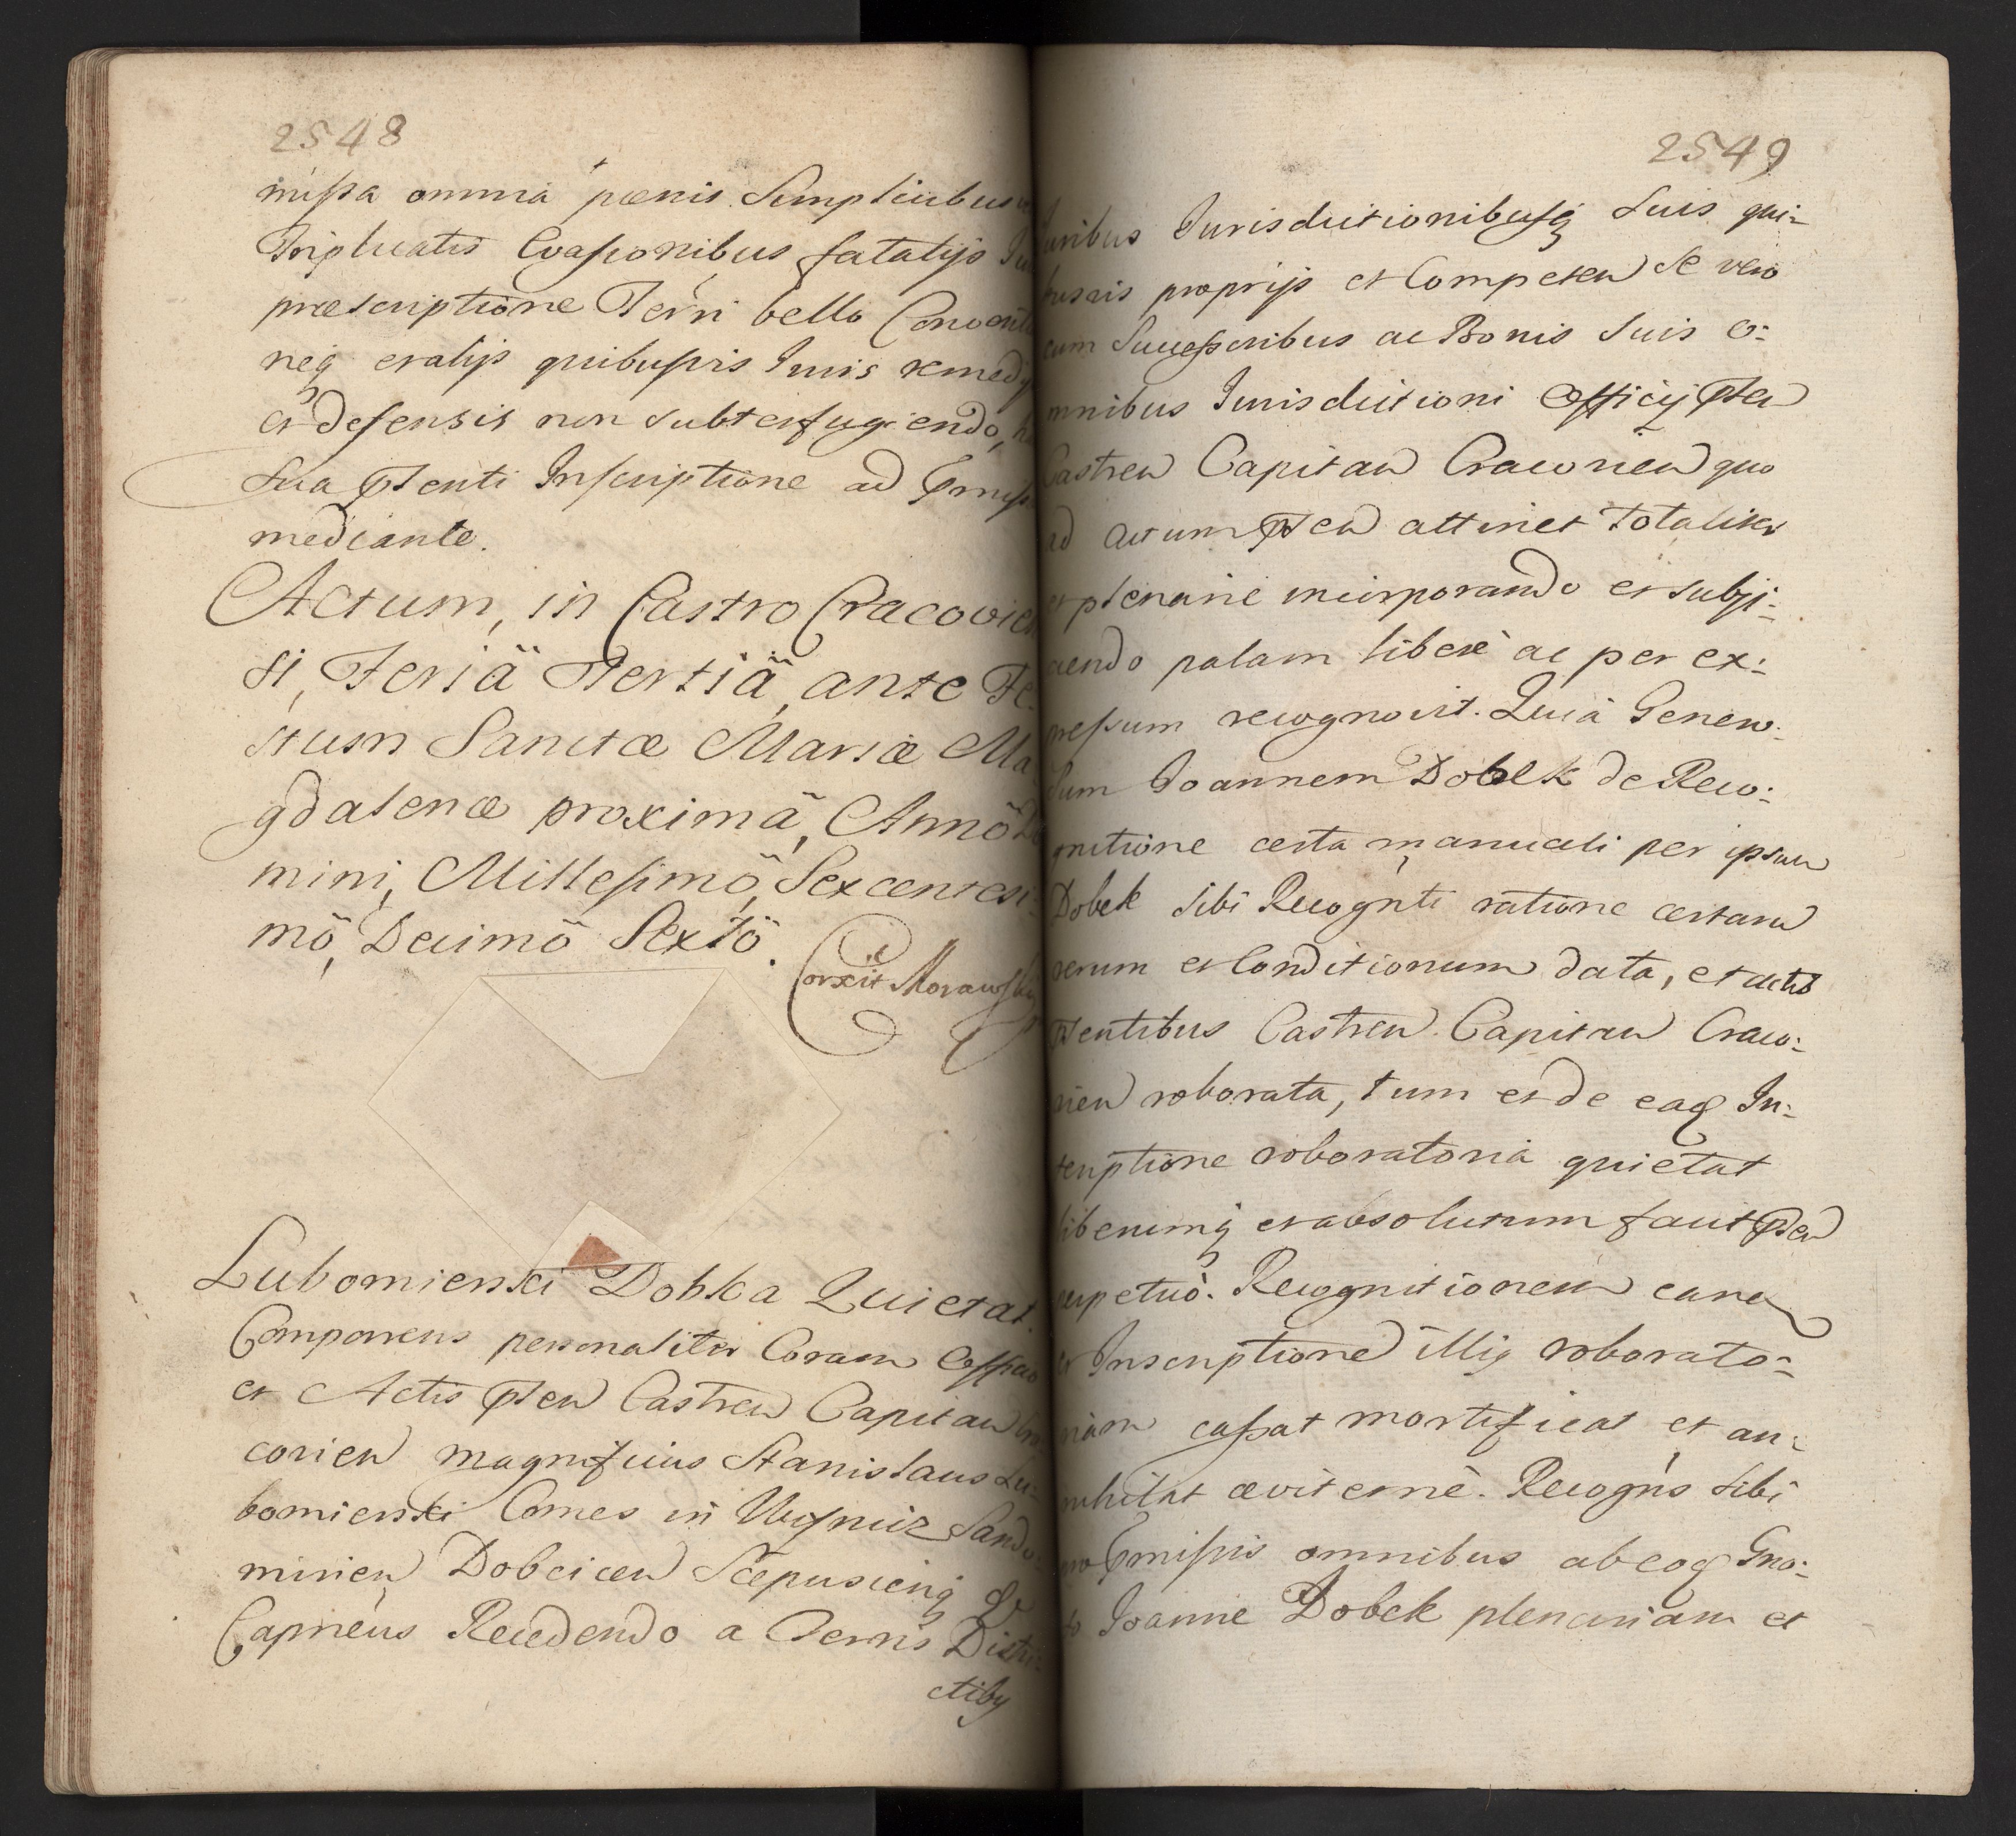 2548
missa omnia pœnis simplicibus
Triplicatis Evasionibus fatalijs
præscriptione Terri bello
neq etalijs quibusvis Iuris remedijs
et defensis non subterfugiendo,
sua pñenti Inscriptione ad
mediante.
Actum, in Castro Cracovien
si, Feriä Tertiä, ante Fe:
stum Sanctæ Mariæ Ma
gdalenæ proximä, Annö
mini, Millesimö, Sexcentesi:
mö, Decimö Sextö.
Corxit Morawsky
Lubomierski Dobka Quietat
Comparens personaliter Coram Officio
et Actis pñten Castren Capitan
covien magnificus Stanislaus Lu:
bomierski Comes in Wisnicz Sando:
mirien Dobcicen Scepusienq &
Capneus Recedendo a Terris Distri:
ctibq
2549
Iuribus Iurisdictionibusq suis qui:
busvis proprijs et Competen se vero
cum Successoribus ac Bonis suis o:
mnibus Iurisdictioni Officij pñten
Castren Capitan Cracovien quo
ad actum pñten attinet totaliter
et plenarie incorporando et subji:
ciendo palam liberè ac per ex:
pressum recognovit. Quià Genero:
sum Joannem Dobek de Reco:
gnitione certa manuali per ipsum
Dobek sibi Recognti ratione certarum
rerum et Conditionum data, et actis
pñentibus Castren Capitan Craco:
vien roborata, tum et de eaq In:
scriptione roboratoria quietat
liberumq et absolutum facit pñten
perpetuò. Recognitionem eam
et Inscriptione illiq roborato:
riam cassat mortificat et an:
nihilat æviternè. Recogns sibi
pro pmissis omnibus ab eoq Gno:
so Joanne Dobek plenariam et